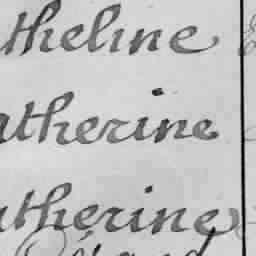 atheline
atherine
atherine